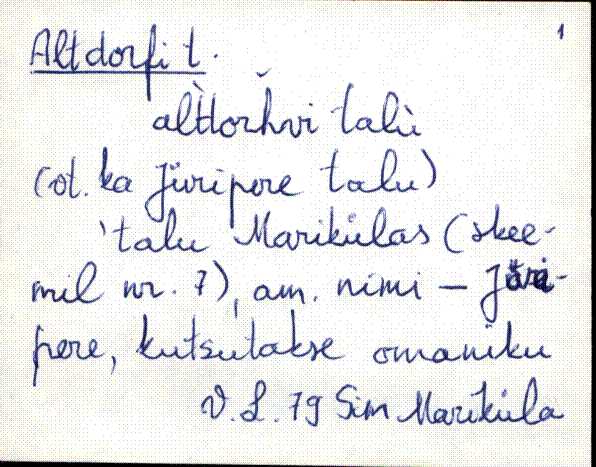 1
Altdorfi t.
al̀tdorh̆vi talù
(ot. ka Jüripere talu)
'talu Marikülas (skee-
mil nr. 7), am. nimi – Jüri-
pere, kutsutakse omaniku
V. L. 79 Sim Mariküla